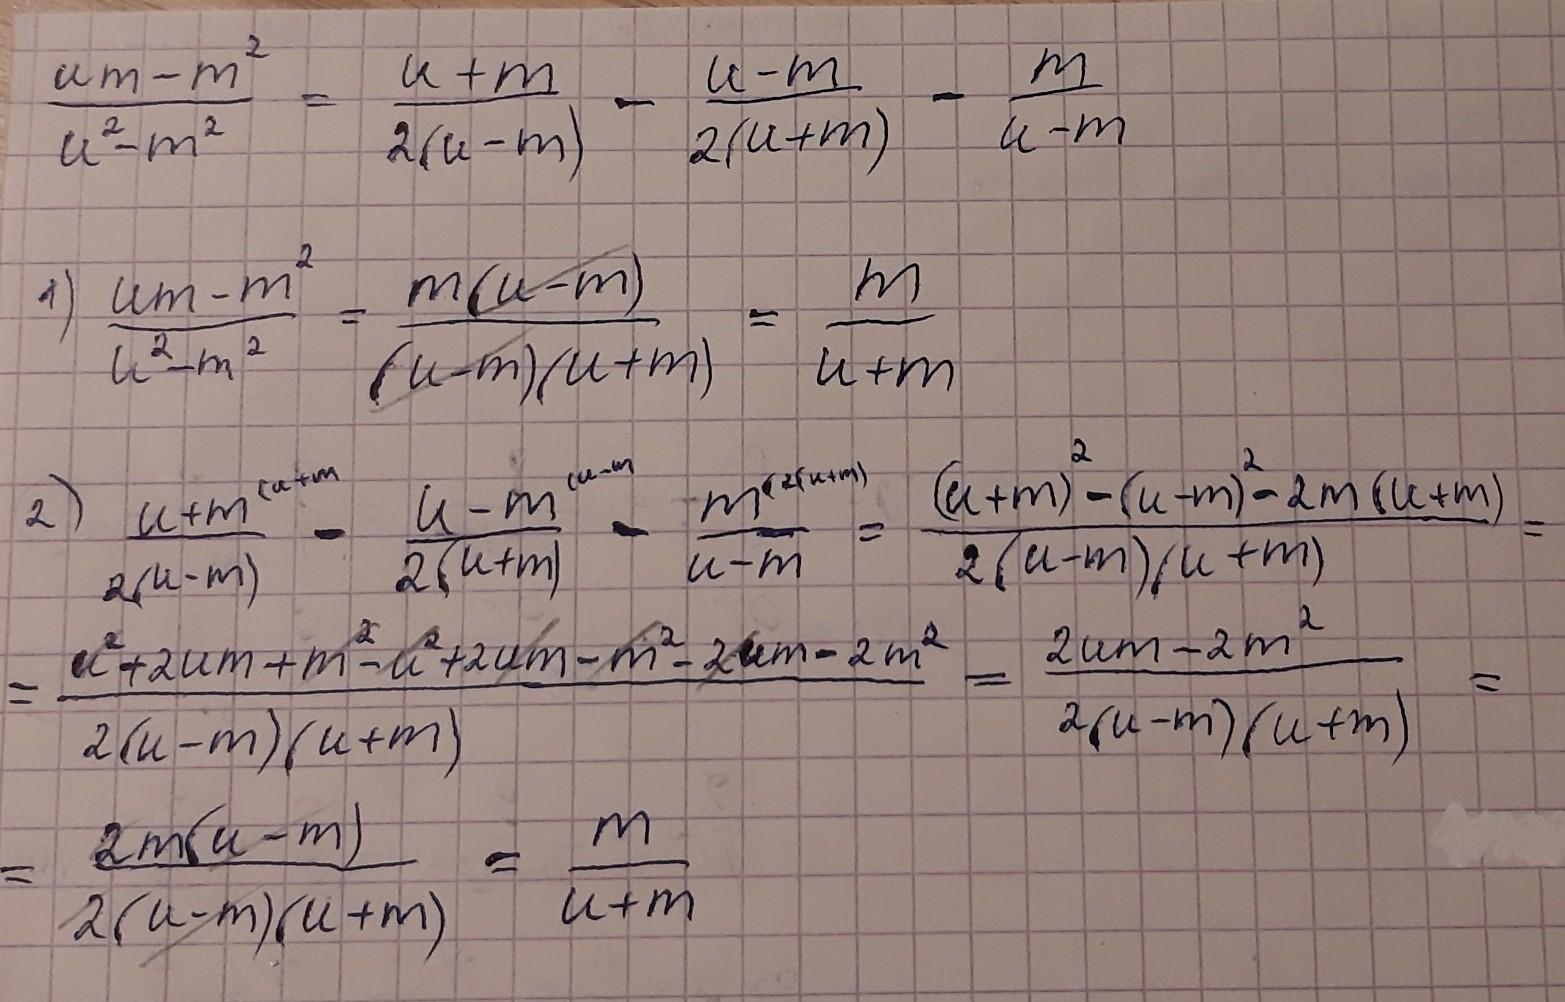 (um-m²)/(u²-m²) = (u+m)/(2(u-m)) - (u-m)/(2(u+m)) - m/(u-m)
1) (um-m²)/(u²-m²) = (m(u-m))/((u-m)(u+m)) = m/(u+m)
2) (u+m)/(2(u-m)) ^(u+m - (u-m)/(2(u+m)) ^(u-m - m/(u-m) ^(2(u+m) = ((u+m)²-(u-m)²-2m(u+m))/(2(u-m)(u+m)) =
= (u²+2um+m²-u²+2um-m²-2um-2m²)/(2(u-m)(u+m)) = (2um-2m²)/(2(u-m)(u+m)) =
= (2m(u-m))/(2(u-m)(u+m)) = m/(u+m)